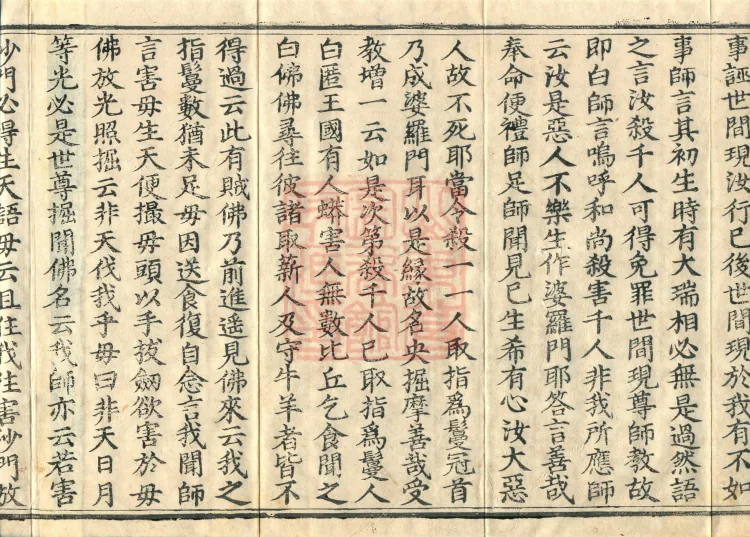 事誣世間現汝行已後世間現於我有不如
事師言其初生時有大瑞相必無是過然語
之言汝殺千人可得免罪世間現尊師教故
即白師言嗚呼和尚殺害千人非我所應師
云汝是惡人不樂生作婆羅門耶答言善哉
奉命便禮師足師聞見已生希有心汝大惡
人故不死耶當令殺一一人取指為鬘冠首
乃成婆羅門耳以是緣故名央掘摩善哉受
教增一云如是次第殺千人已取指為鬘人
白匿王國有人蟒害人無數比丘乞食聞之
白佛佛尋往彼諸取薪人及守牛羊者皆不
得過云此有賊佛乃前進遥見佛來云我之
指鬘數猶未足毋因送食復自念言我聞師
言害毋生天便撮毋頭以手拔劒欲害於毋
佛放光照掘云非天伐我乎毋曰非天日月
等光必是世尊掘聞佛名云我師亦云若害
沙門必得生天語毋云且住我往害沙門放